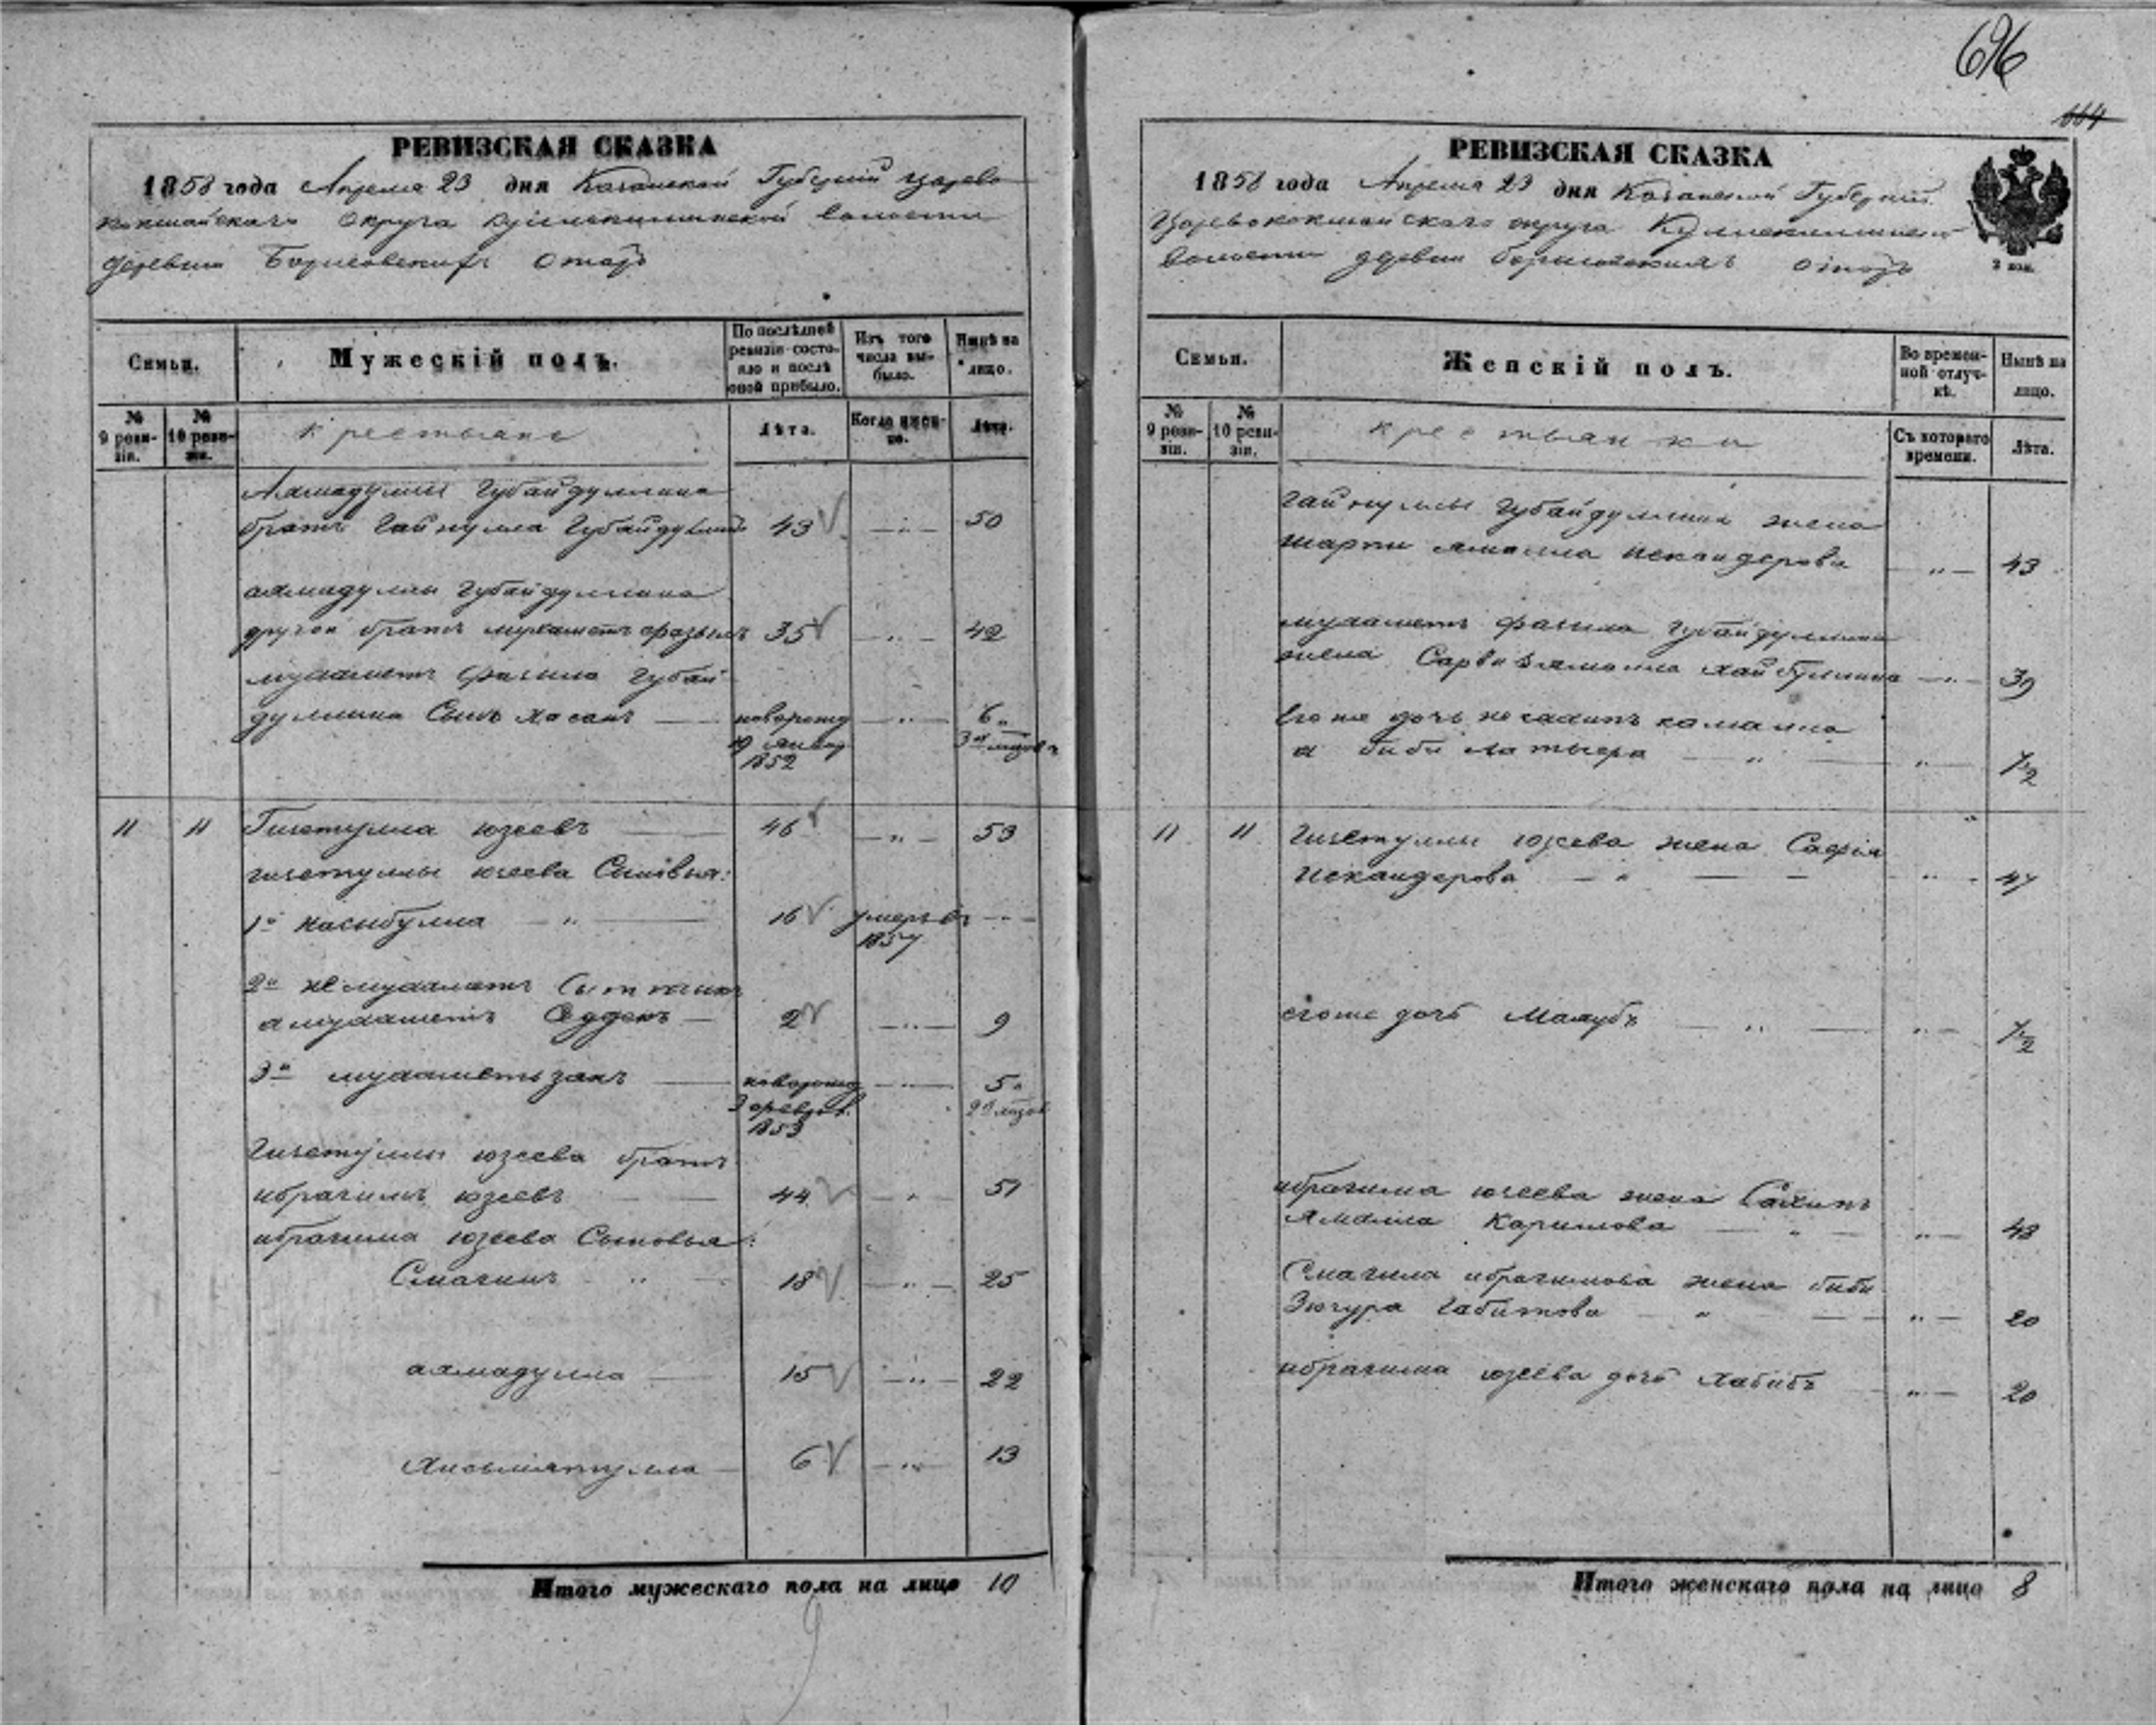 696
664
РЕВИЗСКАЯ СКАЗКА
1858 года Апреля 23 дня Казанской Губернiи Царево
кокшайскаго Округа волости
деревни Борисовскихъ Отаръ
Семьи.
Мужескiй полъ.
По послѣдней ревизiи состояло и послѣ оной прибыло.
Изъ того числа выбыло.
Нынѣ на лицо.
№ 9 ревизiи.
№ 10 ревизiи.
Крестьяне
Лѣта.
Когда именно.
Лѣта.
Ахмадуллы Губайдуллина
братъ Гайнулла Губайдуллинъ 43 — „ — 50
ахмадуллы Губайдуллина
другой братъ мухаметъ фазылъ 35 — „ — 42
мухаметъ Губай
дуллина Сынъ Хасанъ — новорожд — „ — 6„
19 январ 3 мѣсов
1852
11 11 Гизетулла юзеевъ — 46 — „ — 53
гизетуллы юзеева Сыновья:
1й насыбулла — „ — 16 умеръ въ — „ —
1857
2й мухаметъ
а мухаметъ — 2 — „ — 9
3й мухаметьзанъ — новорожд — „ — 5„
3 феврал. 2 мѣсов
1853
Гизетуллы юзеева братъ
ибрагимъ юзеевъ — 44 — „ — 51
ибрагима юзеева Сыновья:
Смагилъ „ — 18 — „ — 25
ахмадулла — 15 — „ — 22
Хисьмятулла — 6 — „ — 13
Итого мужескаго пола на лицо 10
9
РЕВИЗСКАЯ СКАЗКА
1858 года Апреля 23 дня Казанской Губернiи
Царевококшайскаго округа
волости деревни Борисовскихъ Отаръ
2 коп.
Семьи.
Женскiй полъ.
Во временной отлучкѣ.
Нынѣ на лицо.
№ 9 ревизiи.
№ 10 ревизiи.
крестьянки
Съ котораго времени.
Лѣта.
Гайнуллы Губайдуллина жена
Искандерова — „ — 43
мухаметъ Губайдуллина
жена Хайбуллина — „ — 39
его же дочь
а биби — „ — „ — 1/2
11 11 Гизетуллы юзеева жена Сафiя
Искандерова — „ — — — „ — 47
егоже дочь Махубъ — „ — „ — 1/2
ибрагима юзеева жена
ямалла Каримова — „ — „ — 48
Смагила ибрагимова жена биби
Зюгура Габитова — „ — — „ — 20
ибрагима юзеева дочь Хабибъ „ — 20
Итого женскаго пола на лицо 8